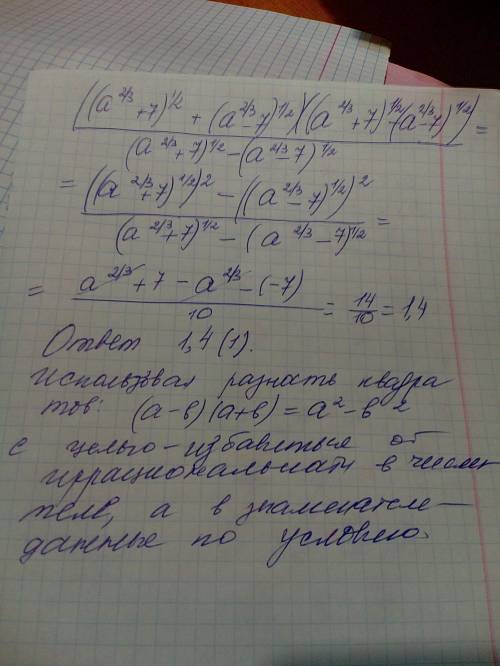 ((a^2/3 + 7)^1/2 + (a^2/3 - 7)^1/2)((a^2/3 + 7)^1/2 - (a^2/3 - 7)^1/2) =
(a^2/3 + 7)^1/2 - (a^2/3 - 7)^1/2
= ((a^2/3 + 7)^1/2)^2 - ((a^2/3 - 7)^1/2)^2 =
(a^2/3 + 7)^1/2 - (a^2/3 - 7)^1/2
= a^2/3 + 7 - a^2/3 - (-7) = 14/10 = 1,4
10
Ответ 1,4 (1).
Использовал разность квадра
тов: (а-в)(а+в) = а^2 - в^2
с целью - избавиться от
иррациональности в числи
теле, а в знаменателе -
данные по условию.